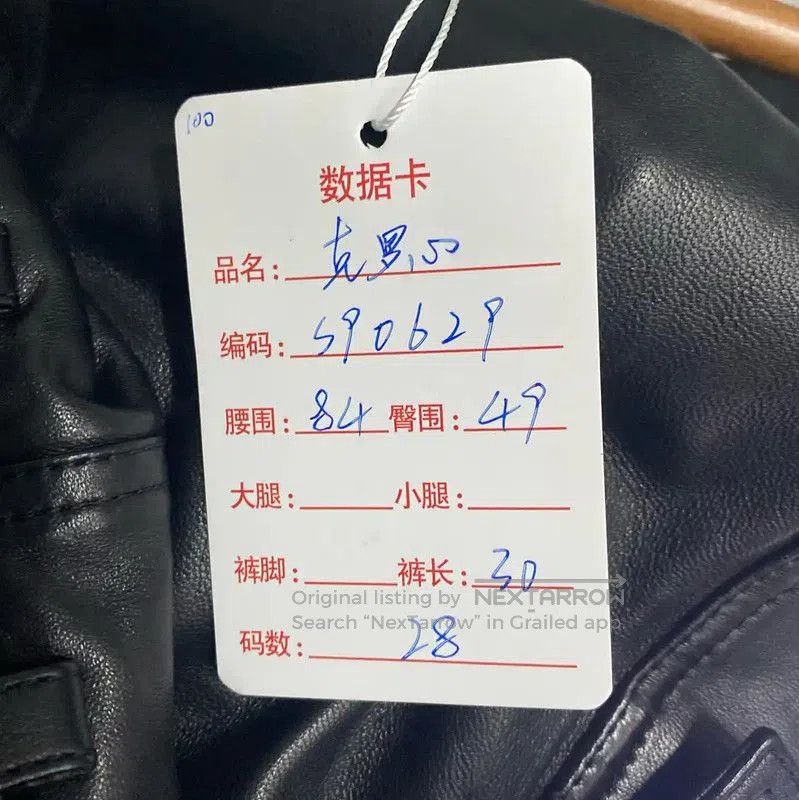 100
数据卡
品名: 克罗心
编码: 590629
腰围: 84 臀围: 49
大腿: 小腿:
裤脚: 裤长: 30
Original listing by NEXTARROW
Search "NexTarrow" in Grailed app
码数: 28